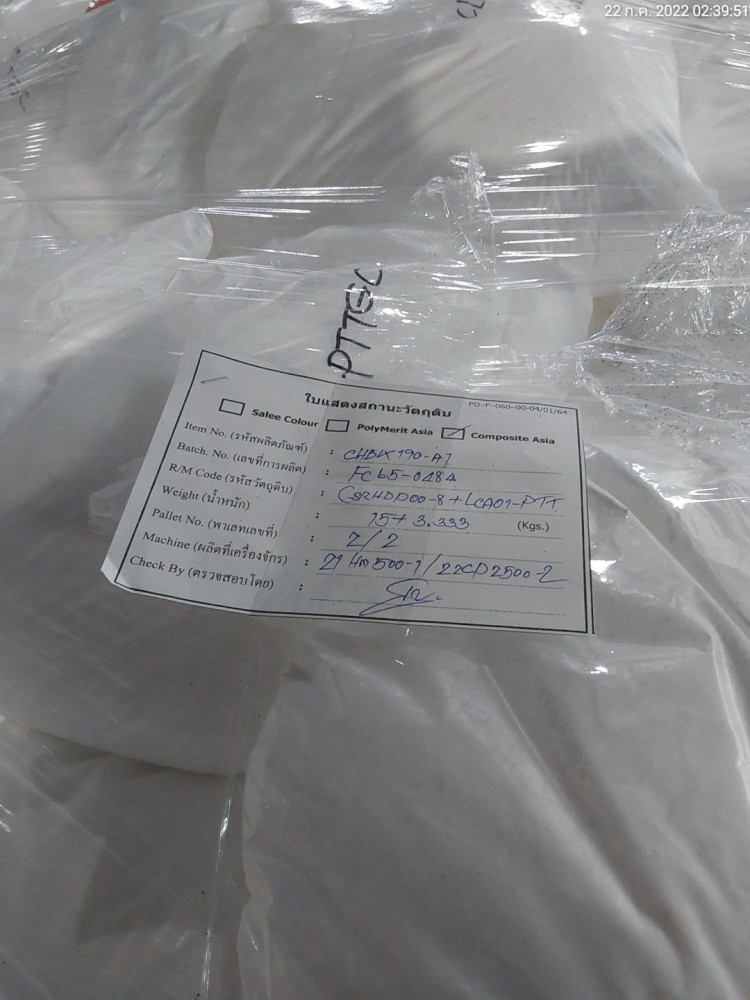 22 ก.ค. 2022 02:39:51
PTTGC
ใบแสดงสถานะวัตถุดิบ PD-F-060-00-04/01/64
Salee Colour PolyMerit Asia Composite Asia
Item No. (รหัสผลิตภัณฑ์) : CHBK190-A7
Batch. No. (เลขที่การผลิต) : FC65-0484
R/M Code (รหัสวัตถุดิบ) : +LCA01-PTT
Weight (น้ำหนัก) : 15+3.333 (Kgs.)
Pallet No. (พาเลทเลขที่) : 2/2
Machine (ผลิตที่เครื่องจักร) : 21Hm500-1/22CD2500-2
Check By (ตรวจสอบโดย) :